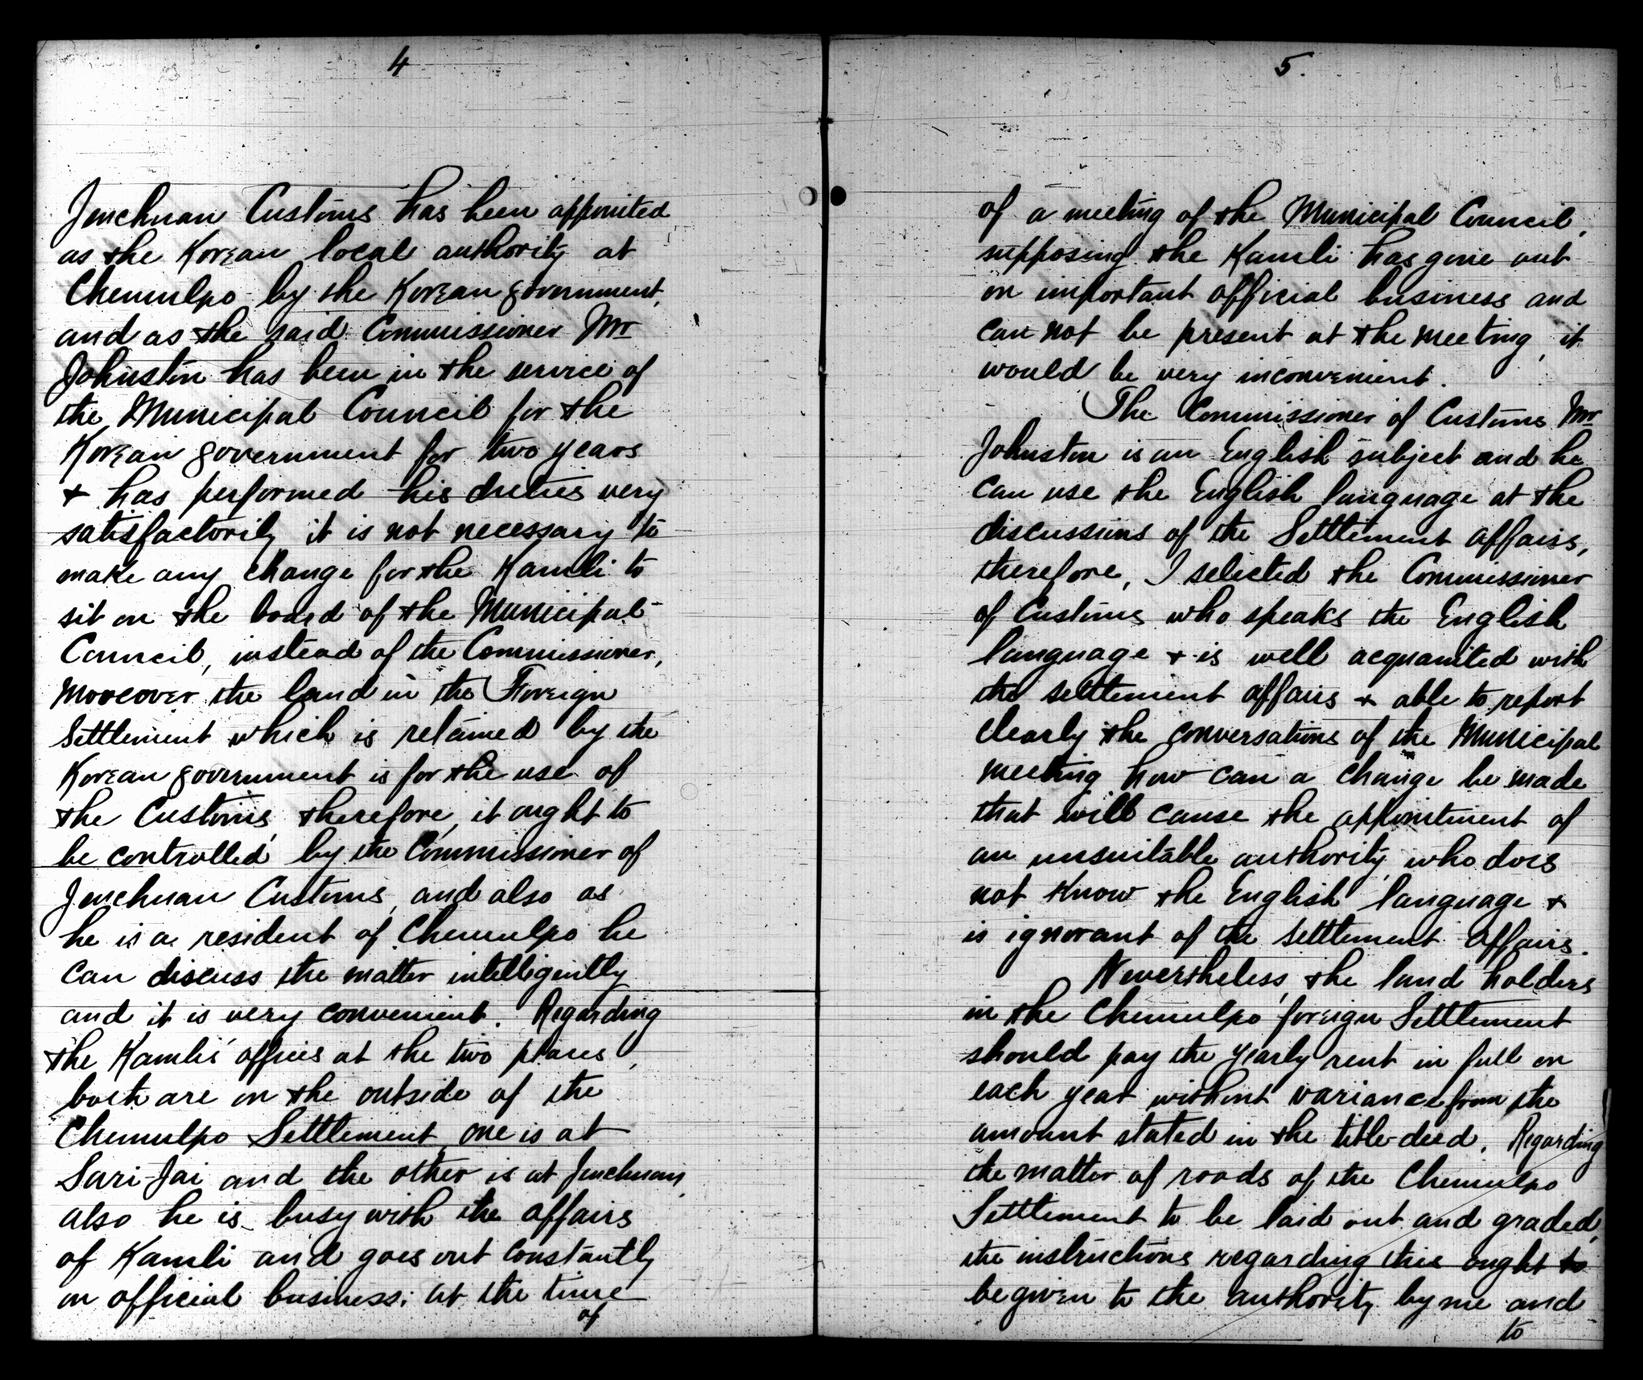 4
Jenchuan Customs has been appointed
as the Korean local authority at
Chemulpo by the Korean government,
and as the said Commissioner Mr
Johnston has been in the service of
the Municipal Council for the
Korean government for two years
+ has performed his duties very
satisfactorily it is not necessary to
make any change for the Kamli to
sit on the board of the Municipal
Council, instead of the Commissioner,
Moreover the land in the Foreign
Settlement which is retained by the
Korean government is for the use of
the Customs, therefore, it ought to
be controlled by the Commissioner of
Jenchuan Customs, and also as
he is a resident of Chemulpo he
can discuss the matter intelligently
and it is very convenient. Regarding
the Kamlis' offices at the two places,
both are on the outside of the
Chemulpo Settlement, one is at
Sari-Jai and the other is at Jenchuan,
also he is busy with the affairs
of Kamli and goes out constantly
on official business; at the time
of
5.
of a meeting of the Municipal Council,
supposing the Kamli has gone out
on important official business and
can not be present at the meeting, it
would be very inconvenient.
The Commissioner of Customs Mr
Johnston is an English subject and he
can use the English language at the
discussions of the Settlement affairs,
therefore, I selected the Commissioner
of Customs who speaks the English
language + is well acquainted with
the settlement affairs + able to report
clearly the conversations of the Municipal
meeting how can a change be made
that will cause the appointment of
an unsuitable authority, who does
not know the English language +
is ignorant of the settlement affairs.
Nevertheless, the land holders
in the Chemulpo foreign Settlement
should pay the yearly rent in full on
each year without variance from the
amount stated in the title-deed. Regarding
the matter of roads of the Chemulpo
Settlement to be laid out and graded,
the instructions regarding this ought to
be given to the authority by me and
to